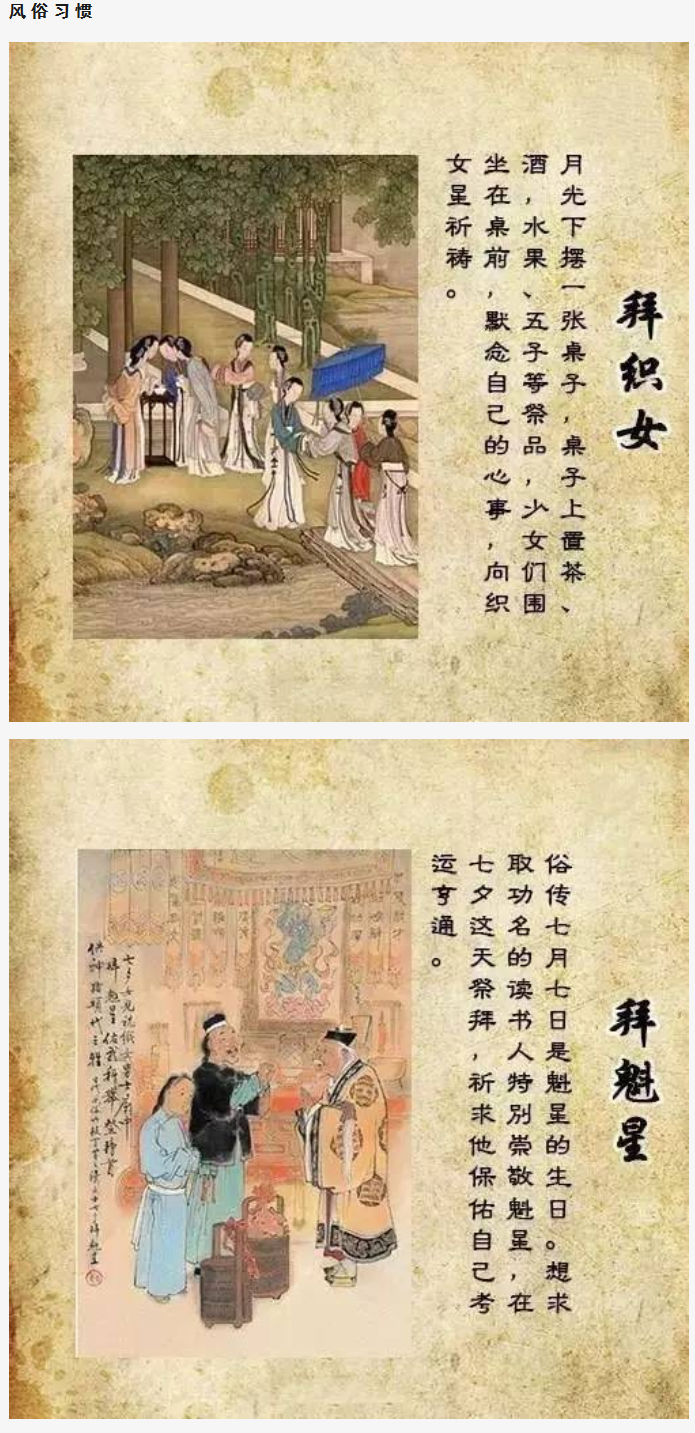 风俗习惯
拜织女
月光下摆一张桌子，桌子上置茶、
酒，水果、五子等祭品，少女们围
坐在桌前，默念自己的心事，向织
女星祈祷。
拜魁星
俗传七月七日是魁星的生日。想求
取功名的读书人特别崇敬魁星，在
七夕这天祭拜，祈求他保佑自己考
运亨通。